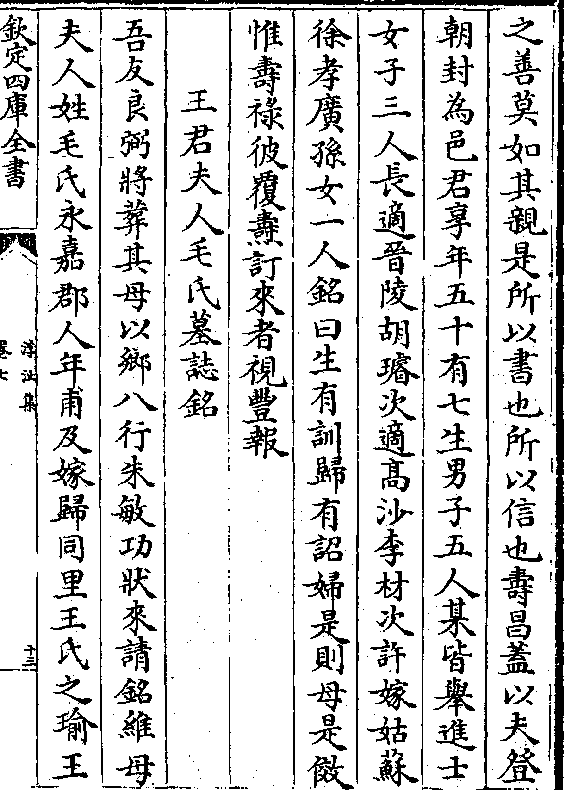 之善莫如其親是所以書也所以信也壽昌蓋以夫登
朝封為邑君享年五十有七生男子五人某皆舉進士
女子三人長適晉陵胡璿次適髙沙李材次許嫁姑蘇
徐孝廣孫女一人銘曰生有訓歸有詔婦是則母是傚
惟壽祿彼覆燾訂來者視豐報
王君夫人毛氏墓誌銘
吾友良弼將葬其母以鄉八行朱敏功狀來請銘維母
夫人姓毛氏永嘉郡人年甫及嫁歸同里王氏之瑜王
欽定四庫全書
浮沚集
卷七
十三